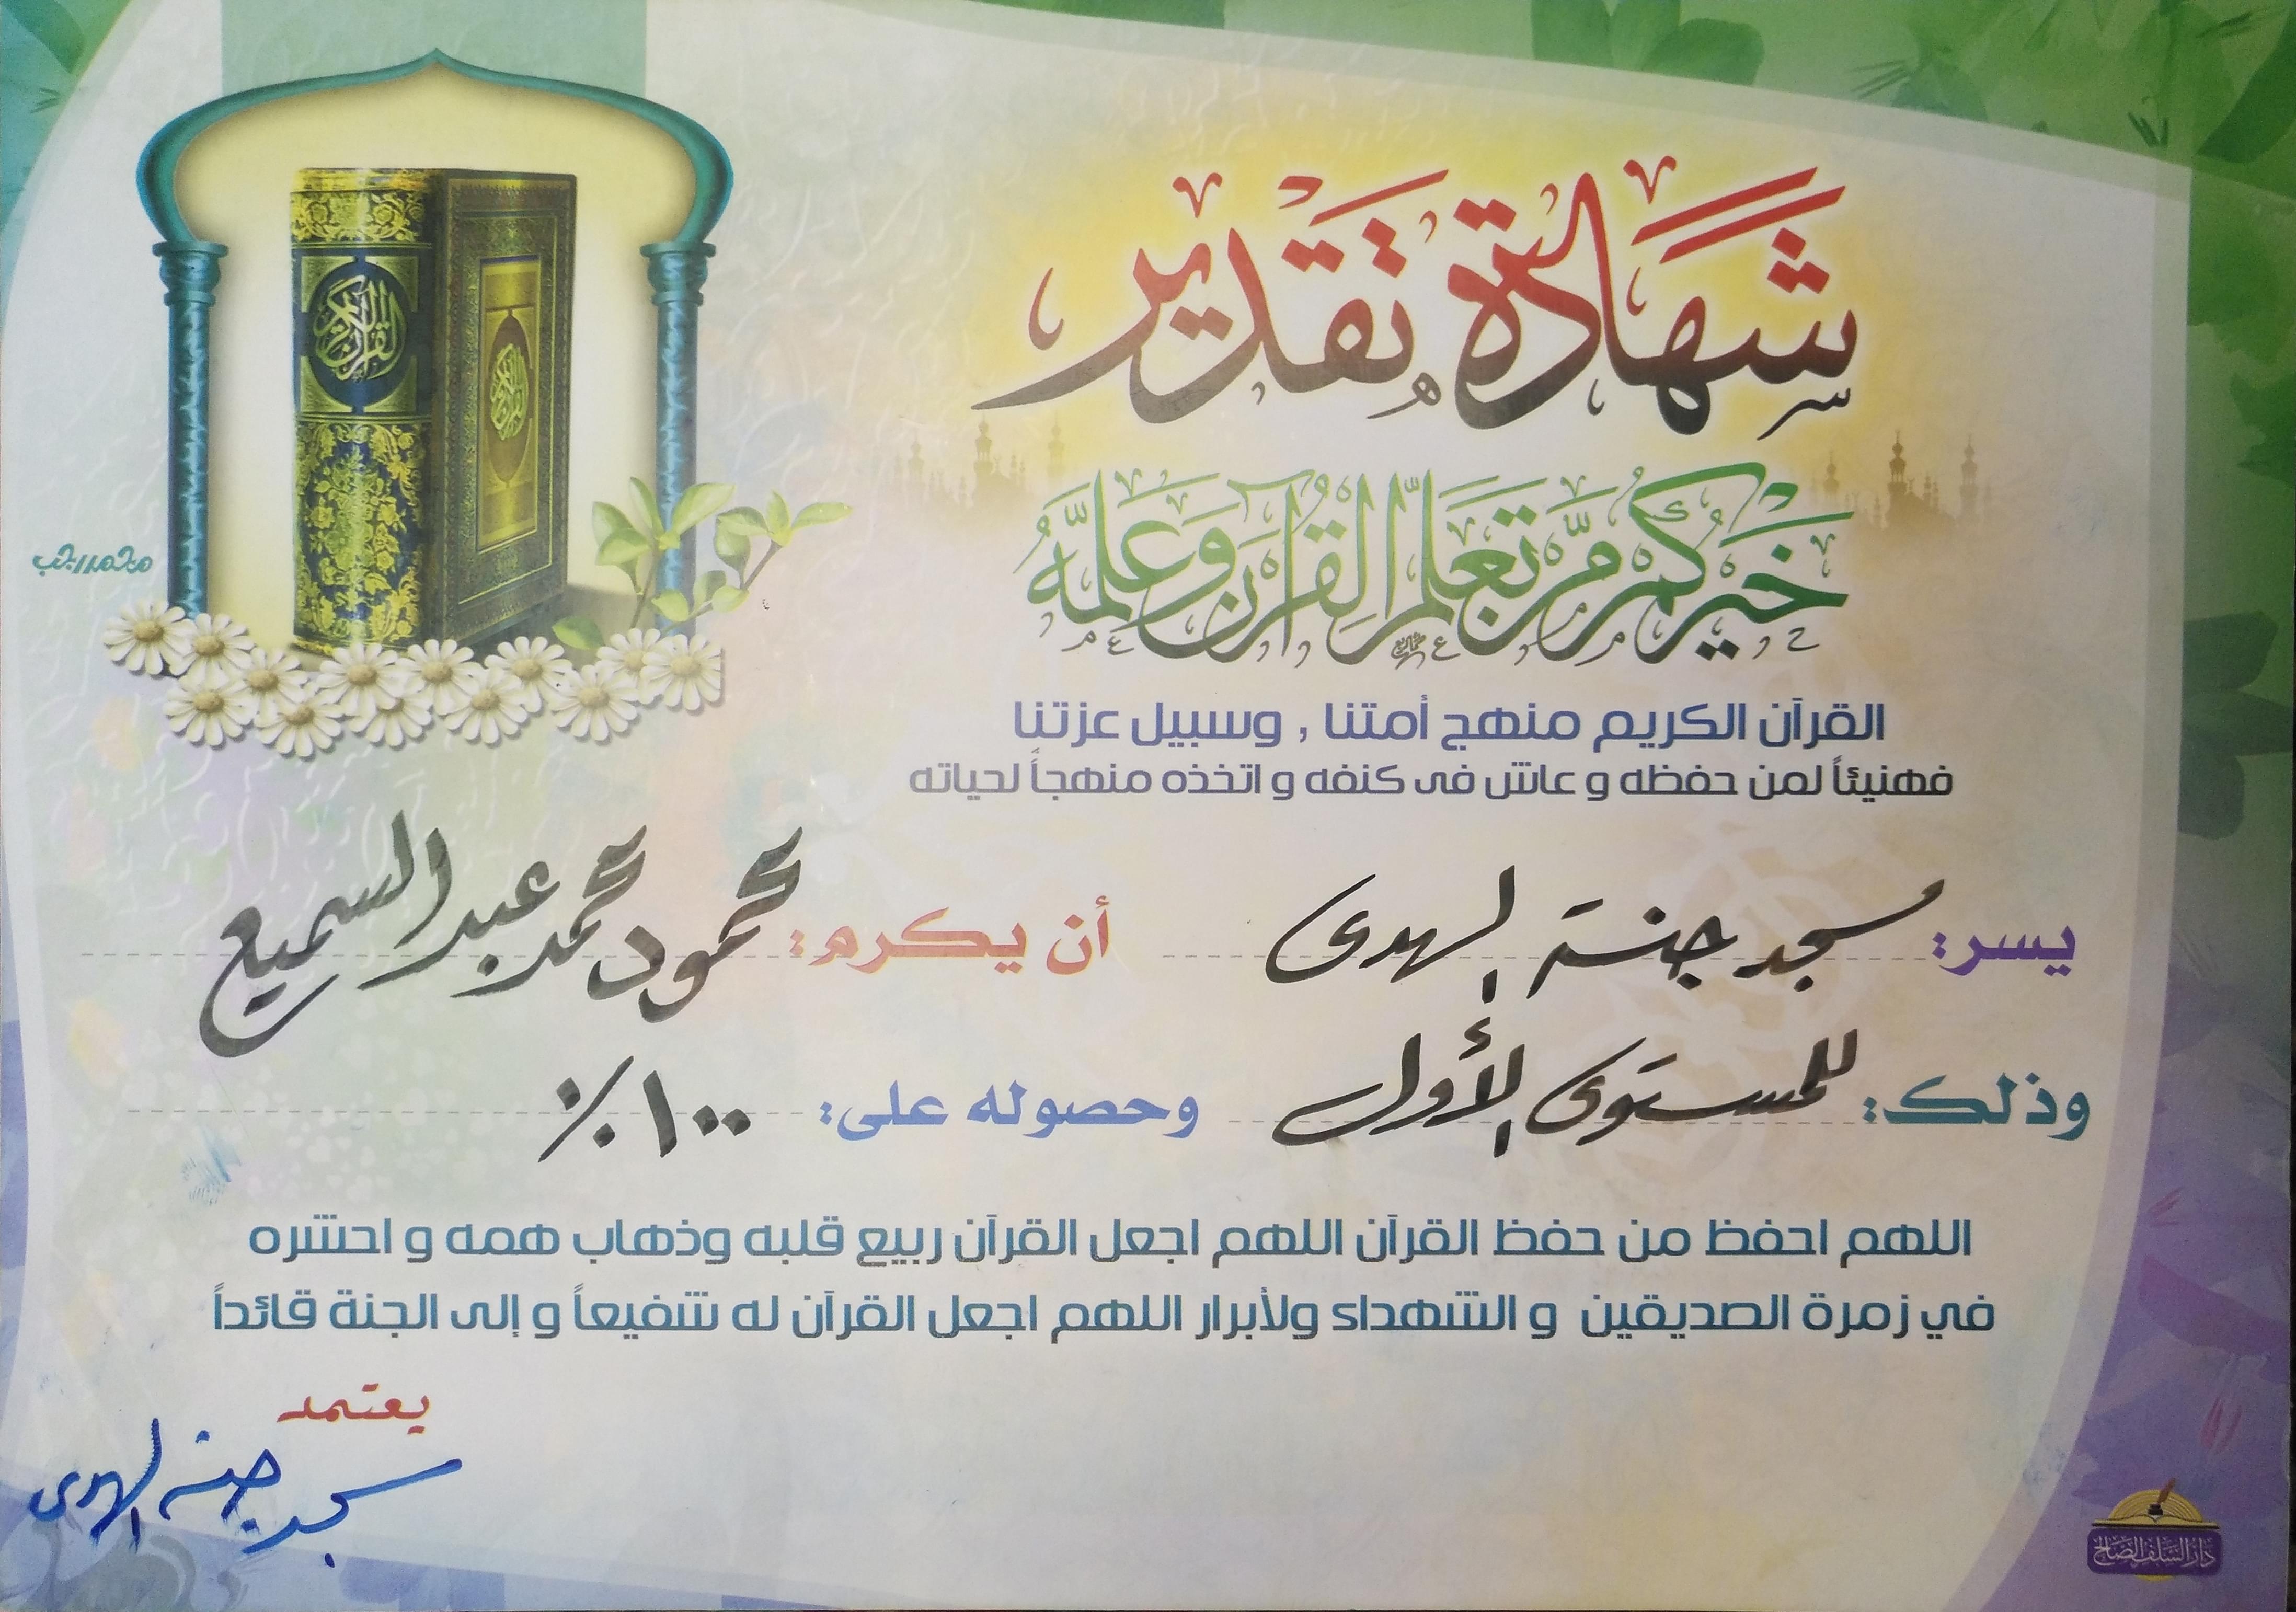 شهادة تقدير
خَيْرُكُمْ مَّنْ تَعَلَّمَ الْقُرْآنَ وَعَلَّمَهُ
القرآن الكريم
القرآن الكريم
محمد رجب
القرآن الكريم منهج أمتنا , وسبيل عزتنا
فهنيئاً لمن حفظه و عاش فى كنفه و اتخذه منهجاً لحياته
يسر: مسجد جنة الهدى أن يكرم: محمود محمد عبد السميع
وذلك: للمستوى الأول وحصوله على: ١٠٠٪
اللهم احفظ من حفظ القرآن اللهم اجعل القرآن ربيع قلبه وذهاب همه و احشره
في زمرة الصديقين و الشهداء ولأبرار اللهم اجعل القرآن له شفيعاً و إلى الجنة قائداً
يعتمد
مسجد جنة الهدى
دار السلف الصالح